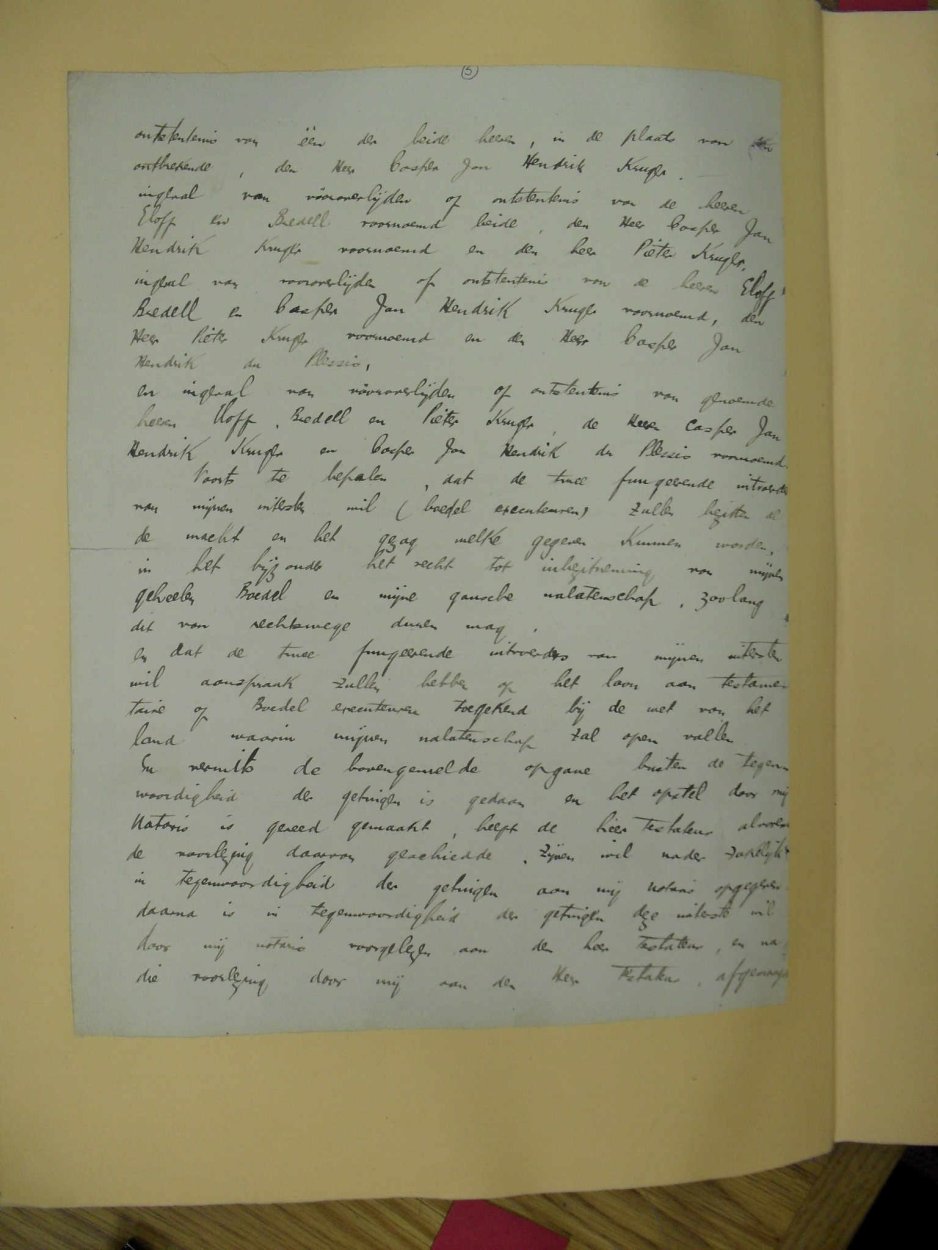 5
ontstentenis van één der beide heeren, in de plaats van den
ontbrekende, den Heer Casper Jan Hendrik Kruger.
ingeval van vóóroverlijden of ontstentenis van de heeren
Eloff en Bredell voornoemd beide, den Heer Casper Jan
Hendrik Kruger voornoemd en den heer Pieter Kruger,
ingeval van vooroverlijden of ontstentenis van de heeren Eloff,
Bredell en Casper Jan Hendrik Kruger voornoemd, den
Heer Pieter Kruger voornoemd en den Heer Casper Jan
Hendrik du Plessis,
en ingeval van vóóroverlijden of ontstentenis van genoemde
heeren Eloff, Bredell en Pieter Kruger, de Heeren Casper Jan
Hendrik Kruger en Casper Jan Hendrik du Plessis voornoemd.
Voorts te bepalen, dat de twee fungeerende uitvoerders
van mijnen uitersten wil (boedel executeuren) zullen bezitten al
de macht en het gezag welke gegeven kunnen worden,
in het bijzonder het recht tot inbezitneming van mijnen
geheelen Boedel en mijne gansche nalatenschap, zoolang
dit van rechtswege duren mag,
en dat de twee fungeerende uitvoerders van mijnen uitersten
wil aanspraak zullen hebben op het loon aan testamen-
taire of Boedel executeuren toegekend bij de wet van het
land waarin mijnen nalatenschap zal open vallen.
En vermits de bovengemelde opgave buiten de tegen-
woordigheid der getuigen is gedaan en het opstel door mij
Notaris is gereed gemaakt, heeft de heer Testateur alvorens
de voorlezing daarvan geschiedde, zijnen wil nader zakelijk
in tegenwoordigheid der getuigen aan mij notaris opgegeven.
daarna is in tegenwoordigheid der getuigen deze uiterste wil
door mij notaris voorgelezen aan den heer Testateur, en na
die voorlezing door mij aan den Heer Testateur, afgevraagd